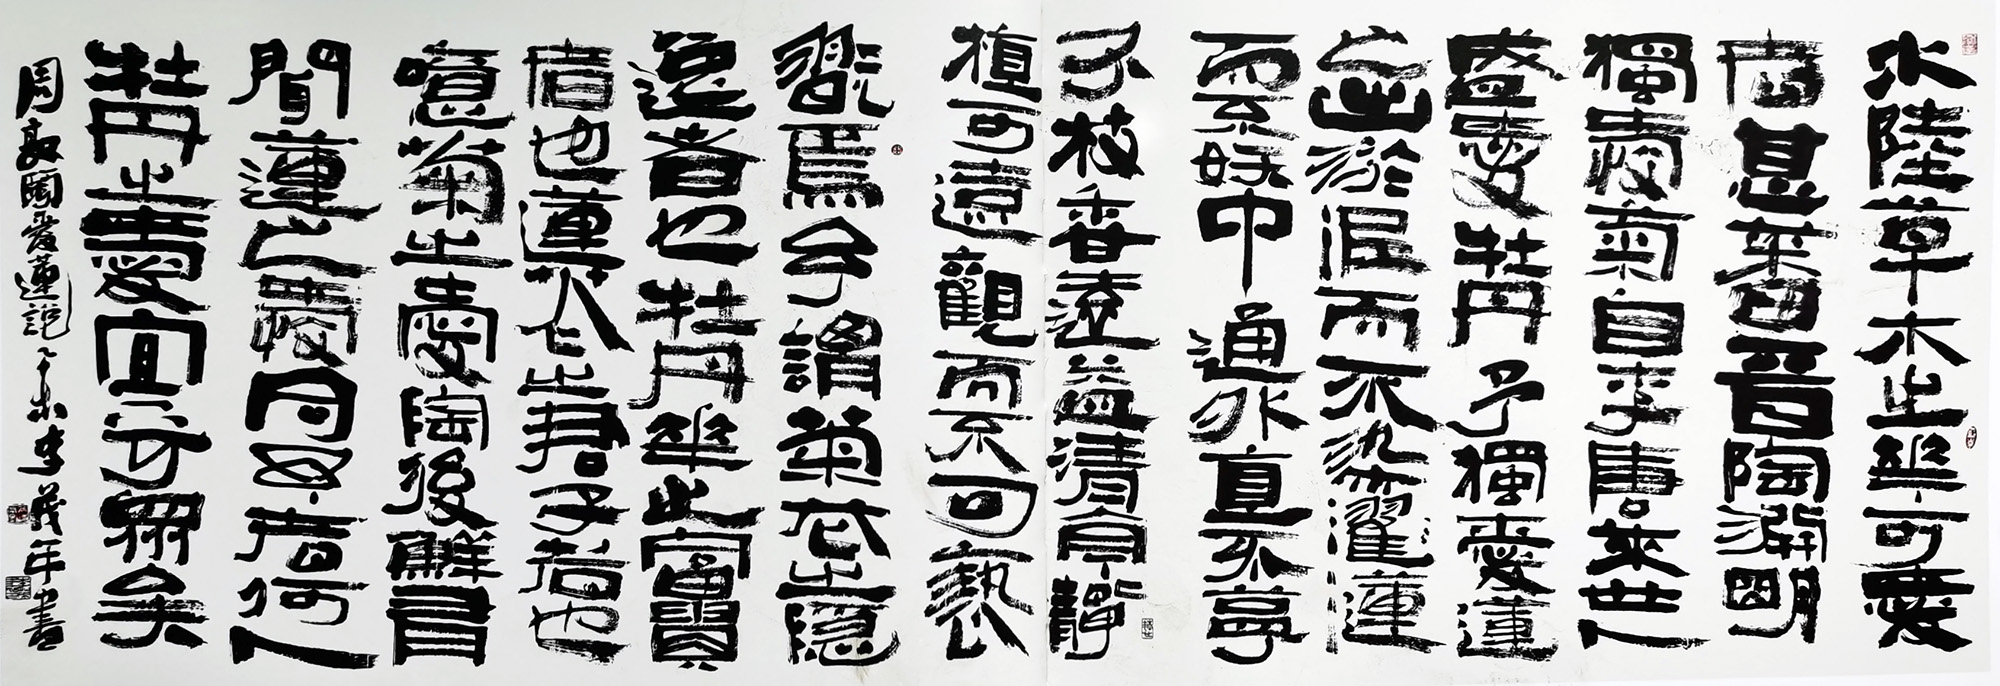 水陸草木之華可愛
者甚蕃晉陶淵明
獨愛菊自李唐來世人
盛愛牡丹予獨愛蓮
之出於泥而不染濯蓮
而不妖中通外直不蔓
不枝香遠益清亭靜
植可遠觀而不可褻
翫焉予謂菊花之隱
逸者也牡丹華之富貴
者也蓮花之君子者也
噫菊之愛陶後鮮有
聞蓮之愛同予者何人
牡丹之愛宜乎眾矣
周敦頤愛蓮說乙未李茂年書